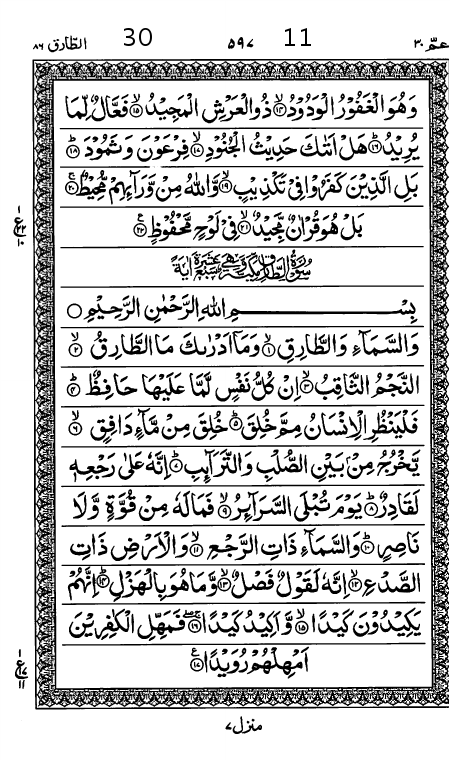 عمّ ٣٠ 11 ۵۹۷ 30 الطارق ٨٦
وَهُوَ الْغَفُوْرُ الْوَدُوْدُ ۙ﴿۱۴﴾ ذُو الْعَرْشِ الْمَجِيْدُ ۙ﴿۱۵﴾ فَعَّالٌ لِّمَا
يُرِيْدُ ؕ﴿۱۶﴾ هَلْ اَتٰىكَ حَدِيْثُ الْجُنُوْدِ ۙ﴿۱۷﴾ فِرْعَوْنَ وَ ثَمُوْدَ ؕ﴿۱۸﴾
بَلِ الَّذِيْنَ كَفَرُوْا فِيْ تَكْذِيْبٍ ۙ﴿۱۹﴾ وَّاللّٰهُ مِنْ وَّرَآىِٕهِمْ مُّحِيْطٌ ۚ﴿۲۰﴾
بَلْ هُوَ قُرْاٰنٌ مَّجِيْدٌ ۙ﴿۲۱﴾ فِيْ لَوْحٍ مَّحْفُوْظٍ ﴿۲۲﴾
سُوْرَةُ الطَّارِقِ مَكِّيَّةٌ وَّهِيَ سَبْعَ عَشْرَةَ اٰيَةً
بِسْمِ اللّٰهِ الرَّحْمٰنِ الرَّحِيْمِ ○
وَالسَّمَآءِ وَالطَّارِقِ ۙ﴿۱﴾ وَمَاۤ اَدْرٰىكَ مَا الطَّارِقُ ۙ﴿۲﴾
النَّجْمُ الثَّاقِبُ ۙ﴿۳﴾ اِنْ كُلُّ نَفْسٍ لَّمَّا عَلَيْهَا حَافِظٌ ؕ﴿۴﴾
فَلْيَنْظُرِ الْاِنْسَانُ مِمَّ خُلِقَ ؕ﴿۵﴾ خُلِقَ مِنْ مَّآءٍ دَافِقٍ ۙ﴿۶﴾
يَّخْرُجُ مِنْۢ بَيْنِ الصُّلْبِ وَالتَّرَآىِٕبِ ؕ﴿۷﴾ اِنَّهٗ عَلٰى رَجْعِهٖ
لَقَادِرٌ ؕ﴿۸﴾ يَوْمَ تُبْلَى السَّرَآىِٕرُ ۙ﴿۹﴾ فَمَا لَهٗ مِنْ قُوَّةٍ وَّلَا
نَاصِرٍ ؕ﴿۱۰﴾ وَالسَّمَآءِ ذَاتِ الرَّجْعِ ۙ﴿۱۱﴾ وَالْاَرْضِ ذَاتِ
الصَّدْعِ ۙ﴿۱۲﴾ اِنَّهٗ لَقَوْلٌ فَصْلٌ ۙ﴿۱۳﴾ وَّمَا هُوَ بِالْهَزْلِ ؕ﴿۱۴﴾ اِنَّهُمْ
يَكِيْدُوْنَ كَيْدًا ۙ﴿۱۵﴾ وَّاَكِيْدُ كَيْدًا ۚۖ﴿۱۶﴾ فَمَهِّلِ الْكٰفِرِيْنَ
اَمْهِلْهُمْ رُوَيْدًا ﴿۱۷﴾
منزل ۷